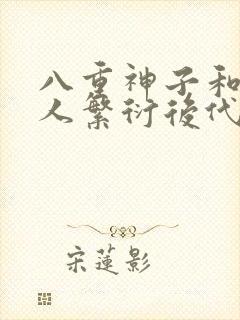 八重神子和
人繁衍後代
宋蓮影